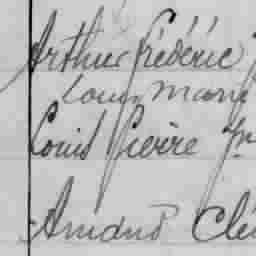 Arthur Frédéric
Louis Marie
Louis Pierre Fr
Amand Clé